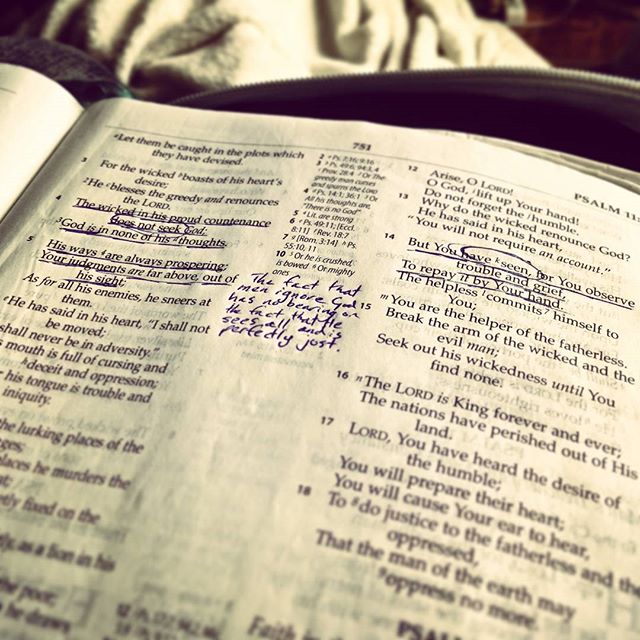 751
PSALM 11
ᵃLet them be caught in the plots which
they have devised.
3 For the wicked ᵇboasts of his heart's
desire;
ᶜHe ᵈblesses the greedy and renounces
the LORD.
4 The wicked in his proud countenance
does not seek God;
God is in none of his ᵉthoughts.
5 His ways ⁶are always prospering;
Your judgments are far above, out of
his sight;
As for all his enemies, he sneers at
them.
He has said in his heart, "I shall not
be moved;
shall never be in adversity."
mouth is full of cursing and
deceit and oppression;
his tongue is trouble and
iniquity.
the lurking places of the
places he murders the
fixed on the
as a lion in his
the poor;
he draws
2 ᵃPs. 7:16; 9:16
3 ᵇPs. 49:6; 94:3, 4
ᶜProv. 28:4 ² Or The
greedy man curses
and spurns the LORD
4 ᵈPs. 14:1; 36:1 ³ Or
All his thoughts are,
"There is no God"
5 ⁴Lit. are strong
6 ᵉPs. 49:11; [Eccl.
8:11] ᶠRev. 18:7
7 ᵍ[Rom. 3:14] ʰPs.
55:10, 11
10 ⁵Or he is crushed,
is bowed ⁶Or mighty
ones
The fact that
men ignore God
has no bearing on
the fact that He
sees all and is
perfectly just.
12 Arise, O LORD!
O God, lift up Your hand!
Do not forget the ʲhumble.
13 Why do the wicked renounce God?
He has said in his heart,
"You will not require an account."
14 But You have ᵏseen, for You observe
trouble and grief,
To repay it by Your hand.
The helpless ˡcommits ⁷himself to
You;
ᵐYou are the helper of the fatherless.
15 Break the arm of the wicked and the
evil man;
Seek out his wickedness until You
find none.
16 ⁿThe LORD is King forever and ever;
The nations have perished out of His
land.
17 LORD, You have heard the desire of
the humble;
You will prepare their heart;
You will cause Your ear to hear,
18 To ⁸do justice to the fatherless and the
oppressed,
That the man of the earth may
⁹oppress no more.
Faith in
PSAL